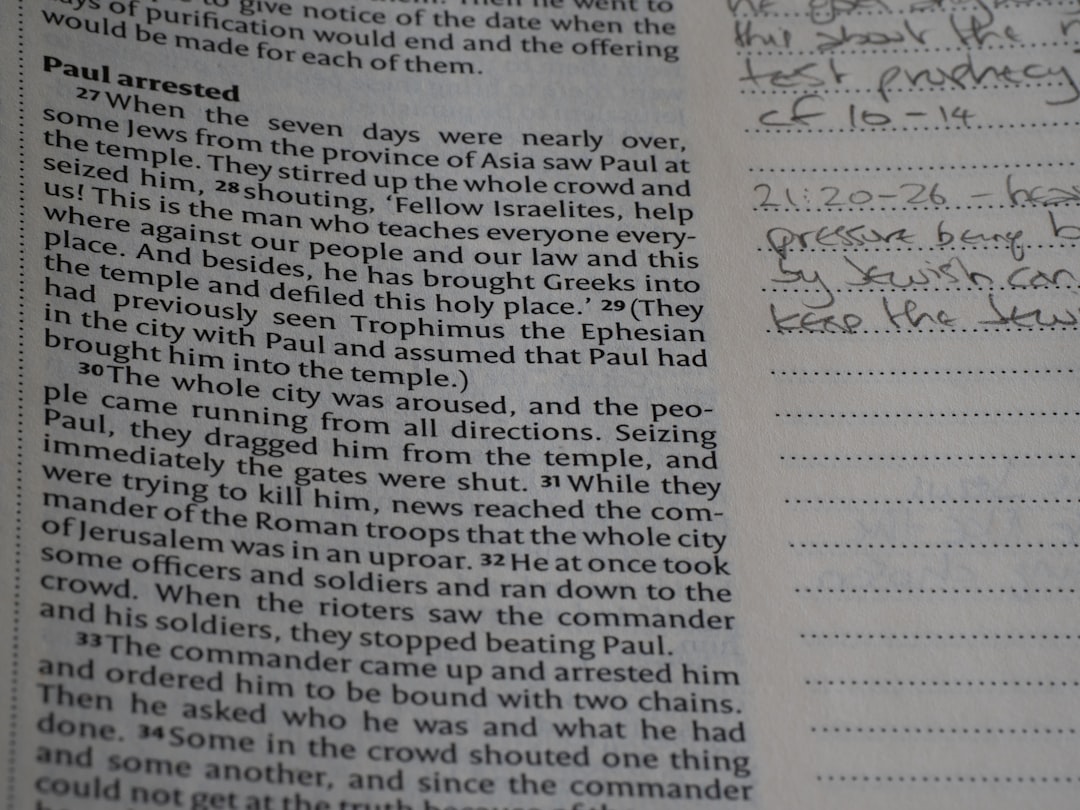 give notice of the date when the
of purification would end and the offering
would be made for each of them.
Paul arrested
27 When the seven days were nearly over,
some Jews from the province of Asia saw Paul at
the temple. They stirred up the whole crowd and
seized him, 28 shouting, ‘Fellow Israelites, help
us! This is the man who teaches everyone every-
where against our people and our law and this
place. And besides, he has brought Greeks into
the temple and defiled this holy place.’ 29 (They
had previously seen Trophimus the Ephesian
in the city with Paul and assumed that Paul had
brought him into the temple.)
30 The whole city was aroused, and the peo-
ple came running from all directions. Seizing
Paul, they dragged him from the temple, and
immediately the gates were shut. 31 While they
were trying to kill him, news reached the com-
mander of the Roman troops that the whole city
of Jerusalem was in an uproar. 32 He at once took
some officers and soldiers and ran down to the
crowd. When the rioters saw the commander
and his soldiers, they stopped beating Paul.
33 The commander came up and arrested him
and ordered him to be bound with two chains.
Then he asked who he was and what he had
done. 34 Some in the crowd shouted one thing
and some another, and since the commander
could not get at the truth because of the
this about the
test prophecy
cf 10-14
21:20-26 -
pressure being b
by Jewish
keep the Jew